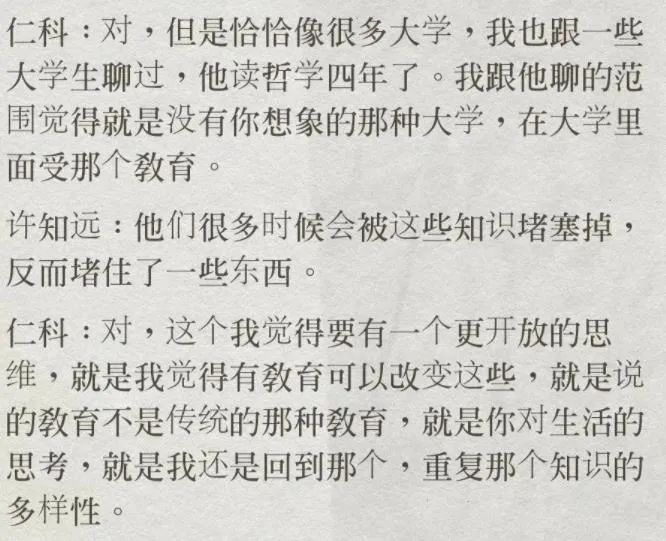 仁科：对，但是恰恰像很多大学，我也跟一些
大学生聊过，他读哲学四年了。我跟他聊的范
围觉得就是没有你想象的那种大学，在大学里
面受那个教育。
许知远：他们很多时候会被这些知识堵塞掉，
反而堵住了一些东西。
仁科：对，这个我觉得要有一个更开放的思
维，就是我觉得有教育可以改变这些，就是说
的教育不是传统的那种教育，就是你对生活的
思考，就是我还是回到那个，重复那个知识的
多样性。